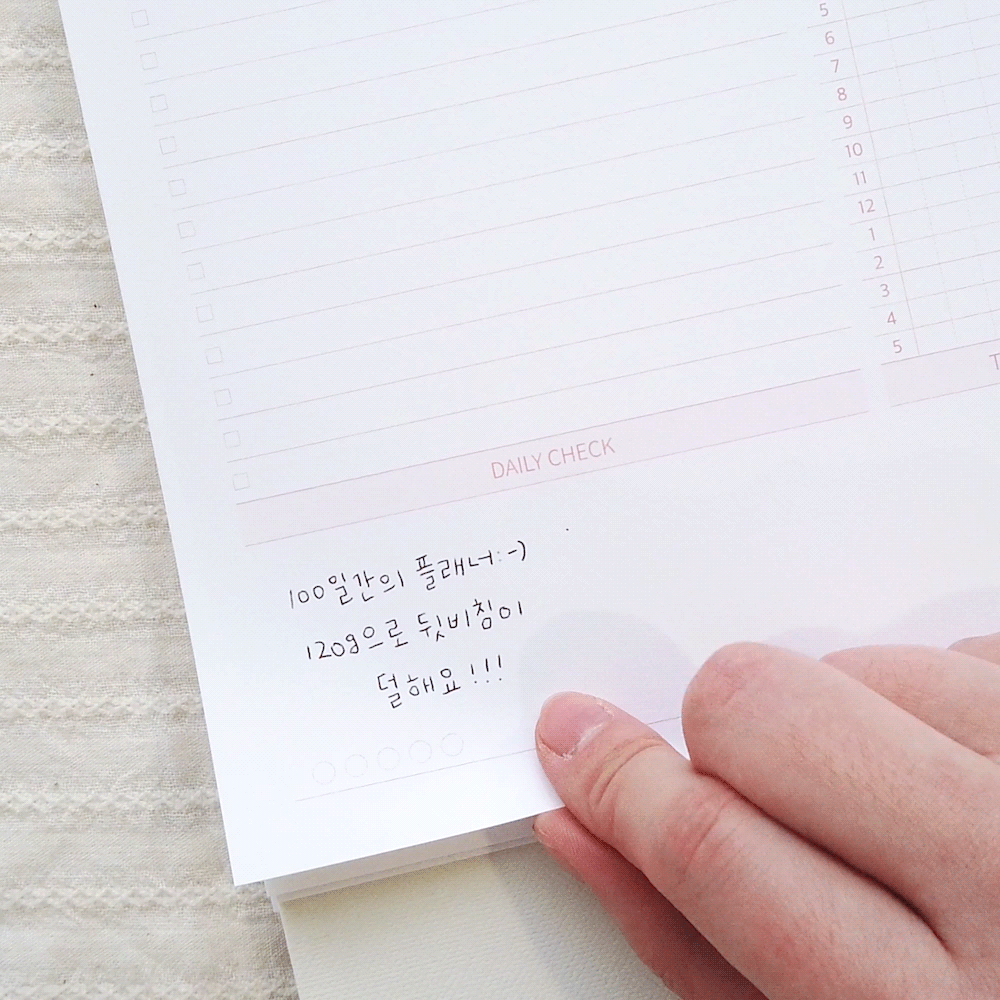 5
6
7
8
9
10
11
12
1
2
3
4
5
T
DAILY CHECK
100일간의 플래너:-)
120g으로 뒷비침이
덜해요!!!